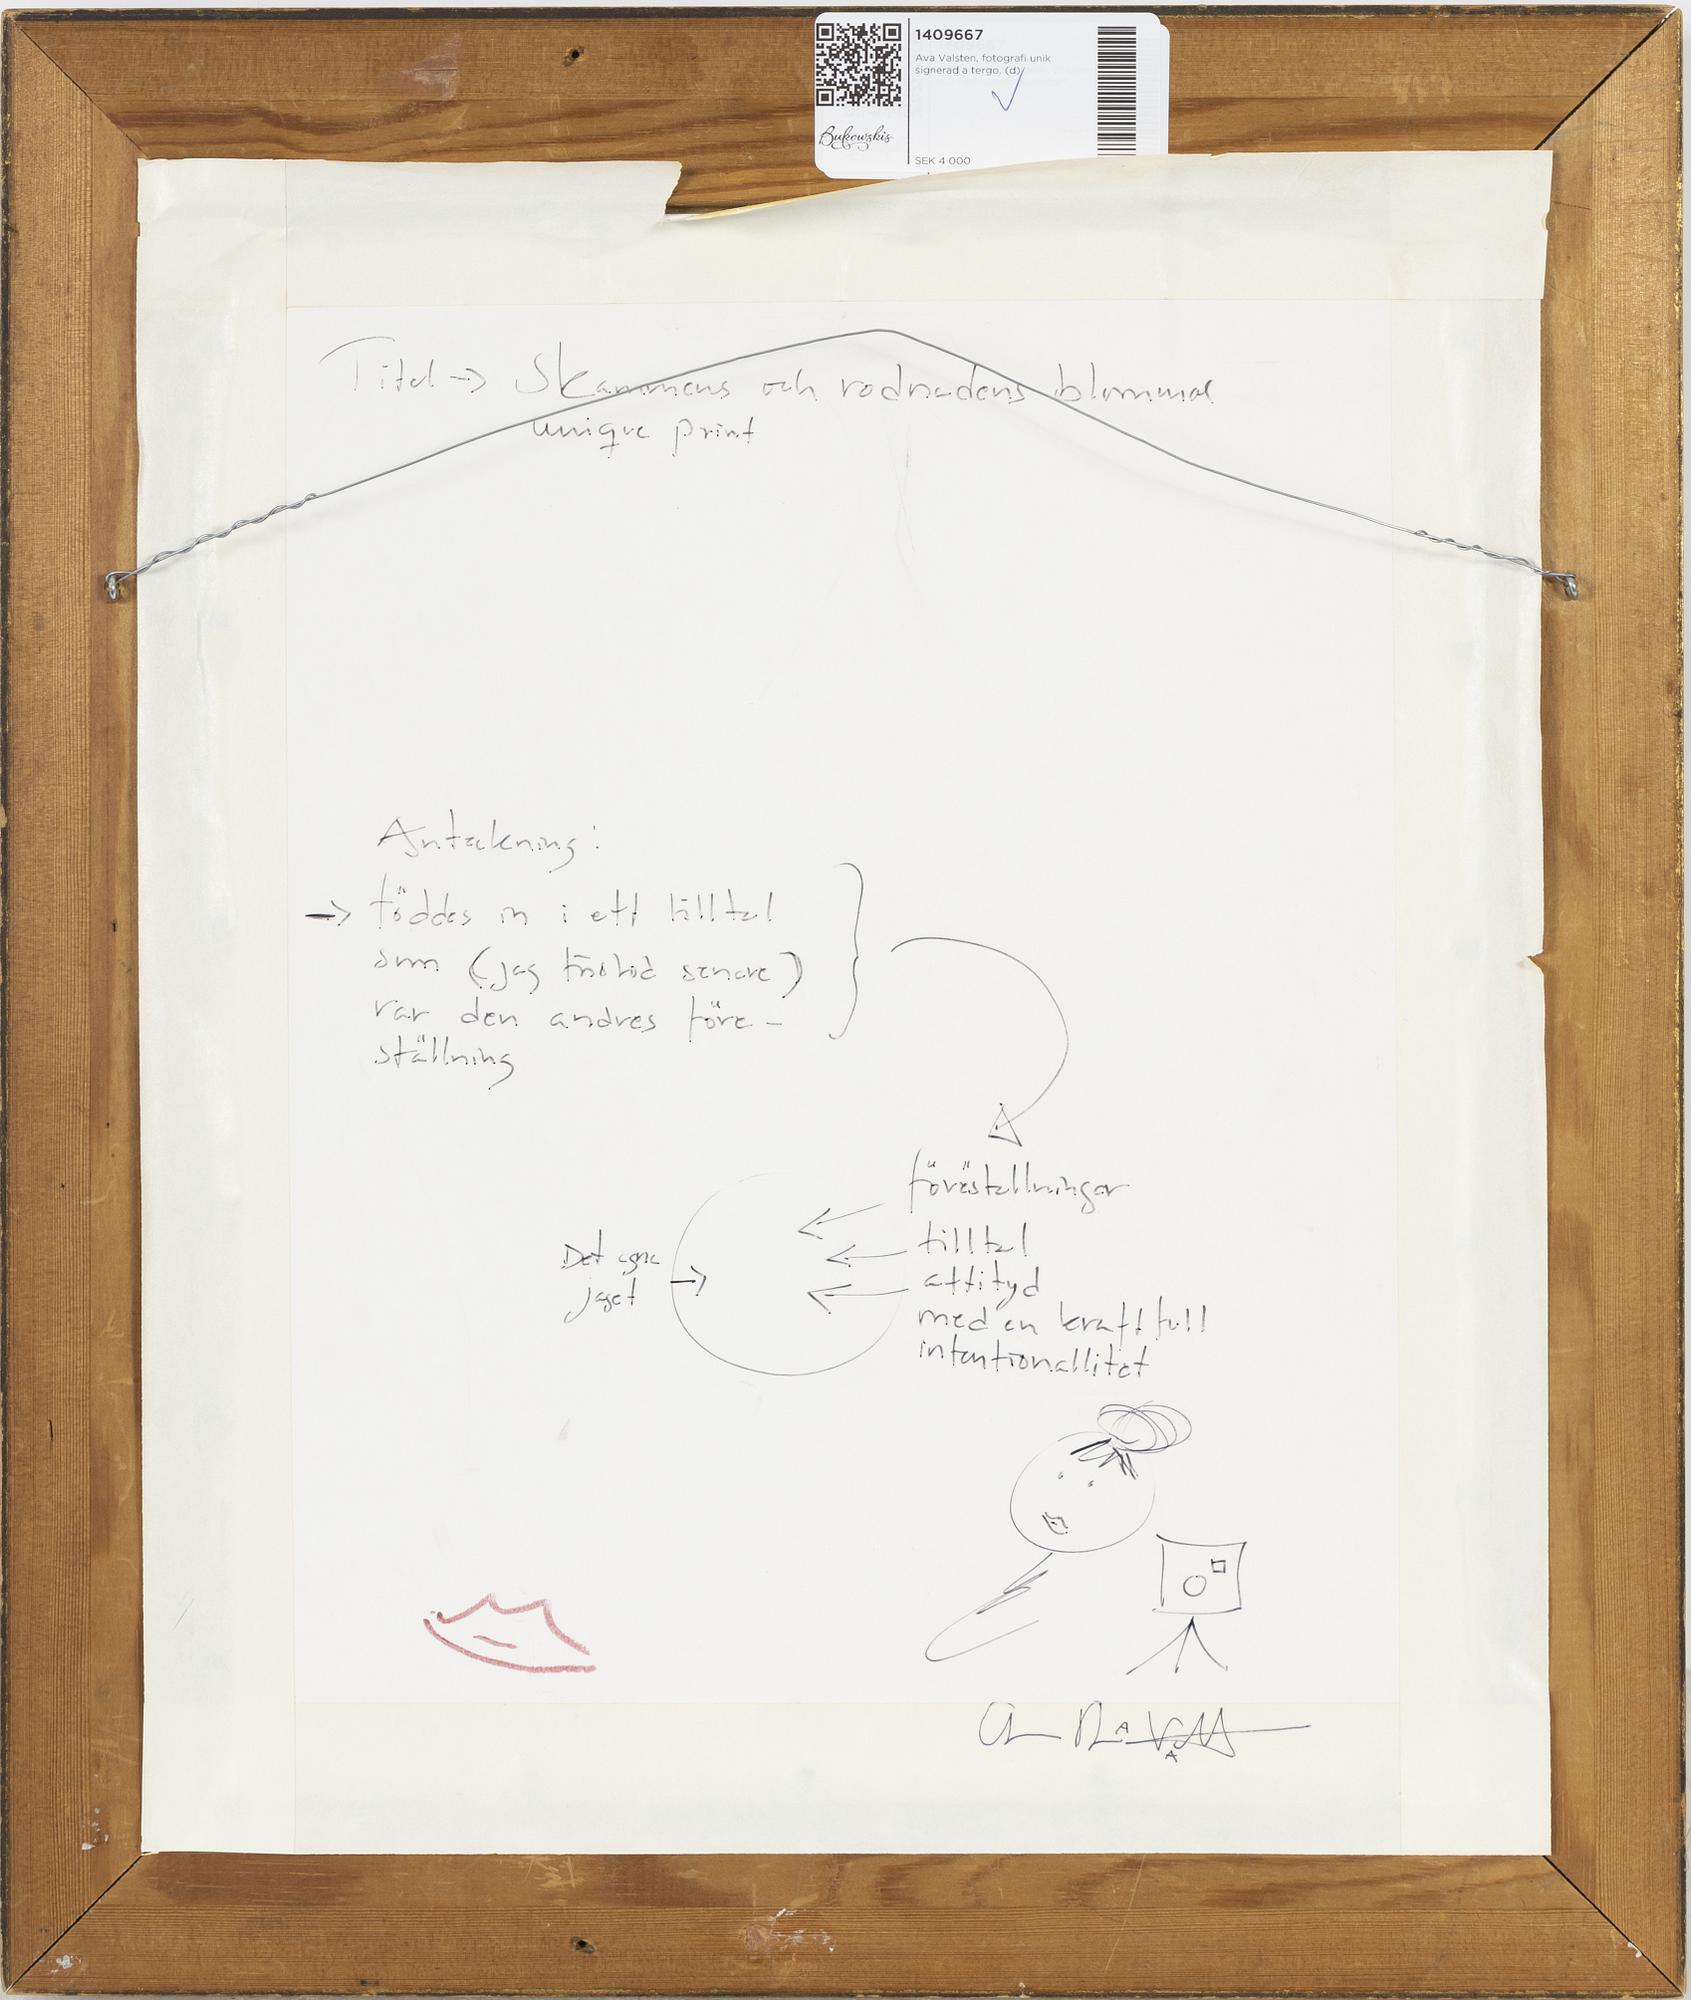 1409667
Ava Valsten, fotografi unik
signerad a tergo. (d)
Bukowskis
SEK 4 000
Titel → Skammens och rodnadens blommor
unique print
Anteckning:
→ föddes in i ett tilltal
som (jag förstod senare)
var den andres före-
ställning
föreställningar
Det egna
jaget →
tilltal
attityd
med en kraftfull
intentionallitet